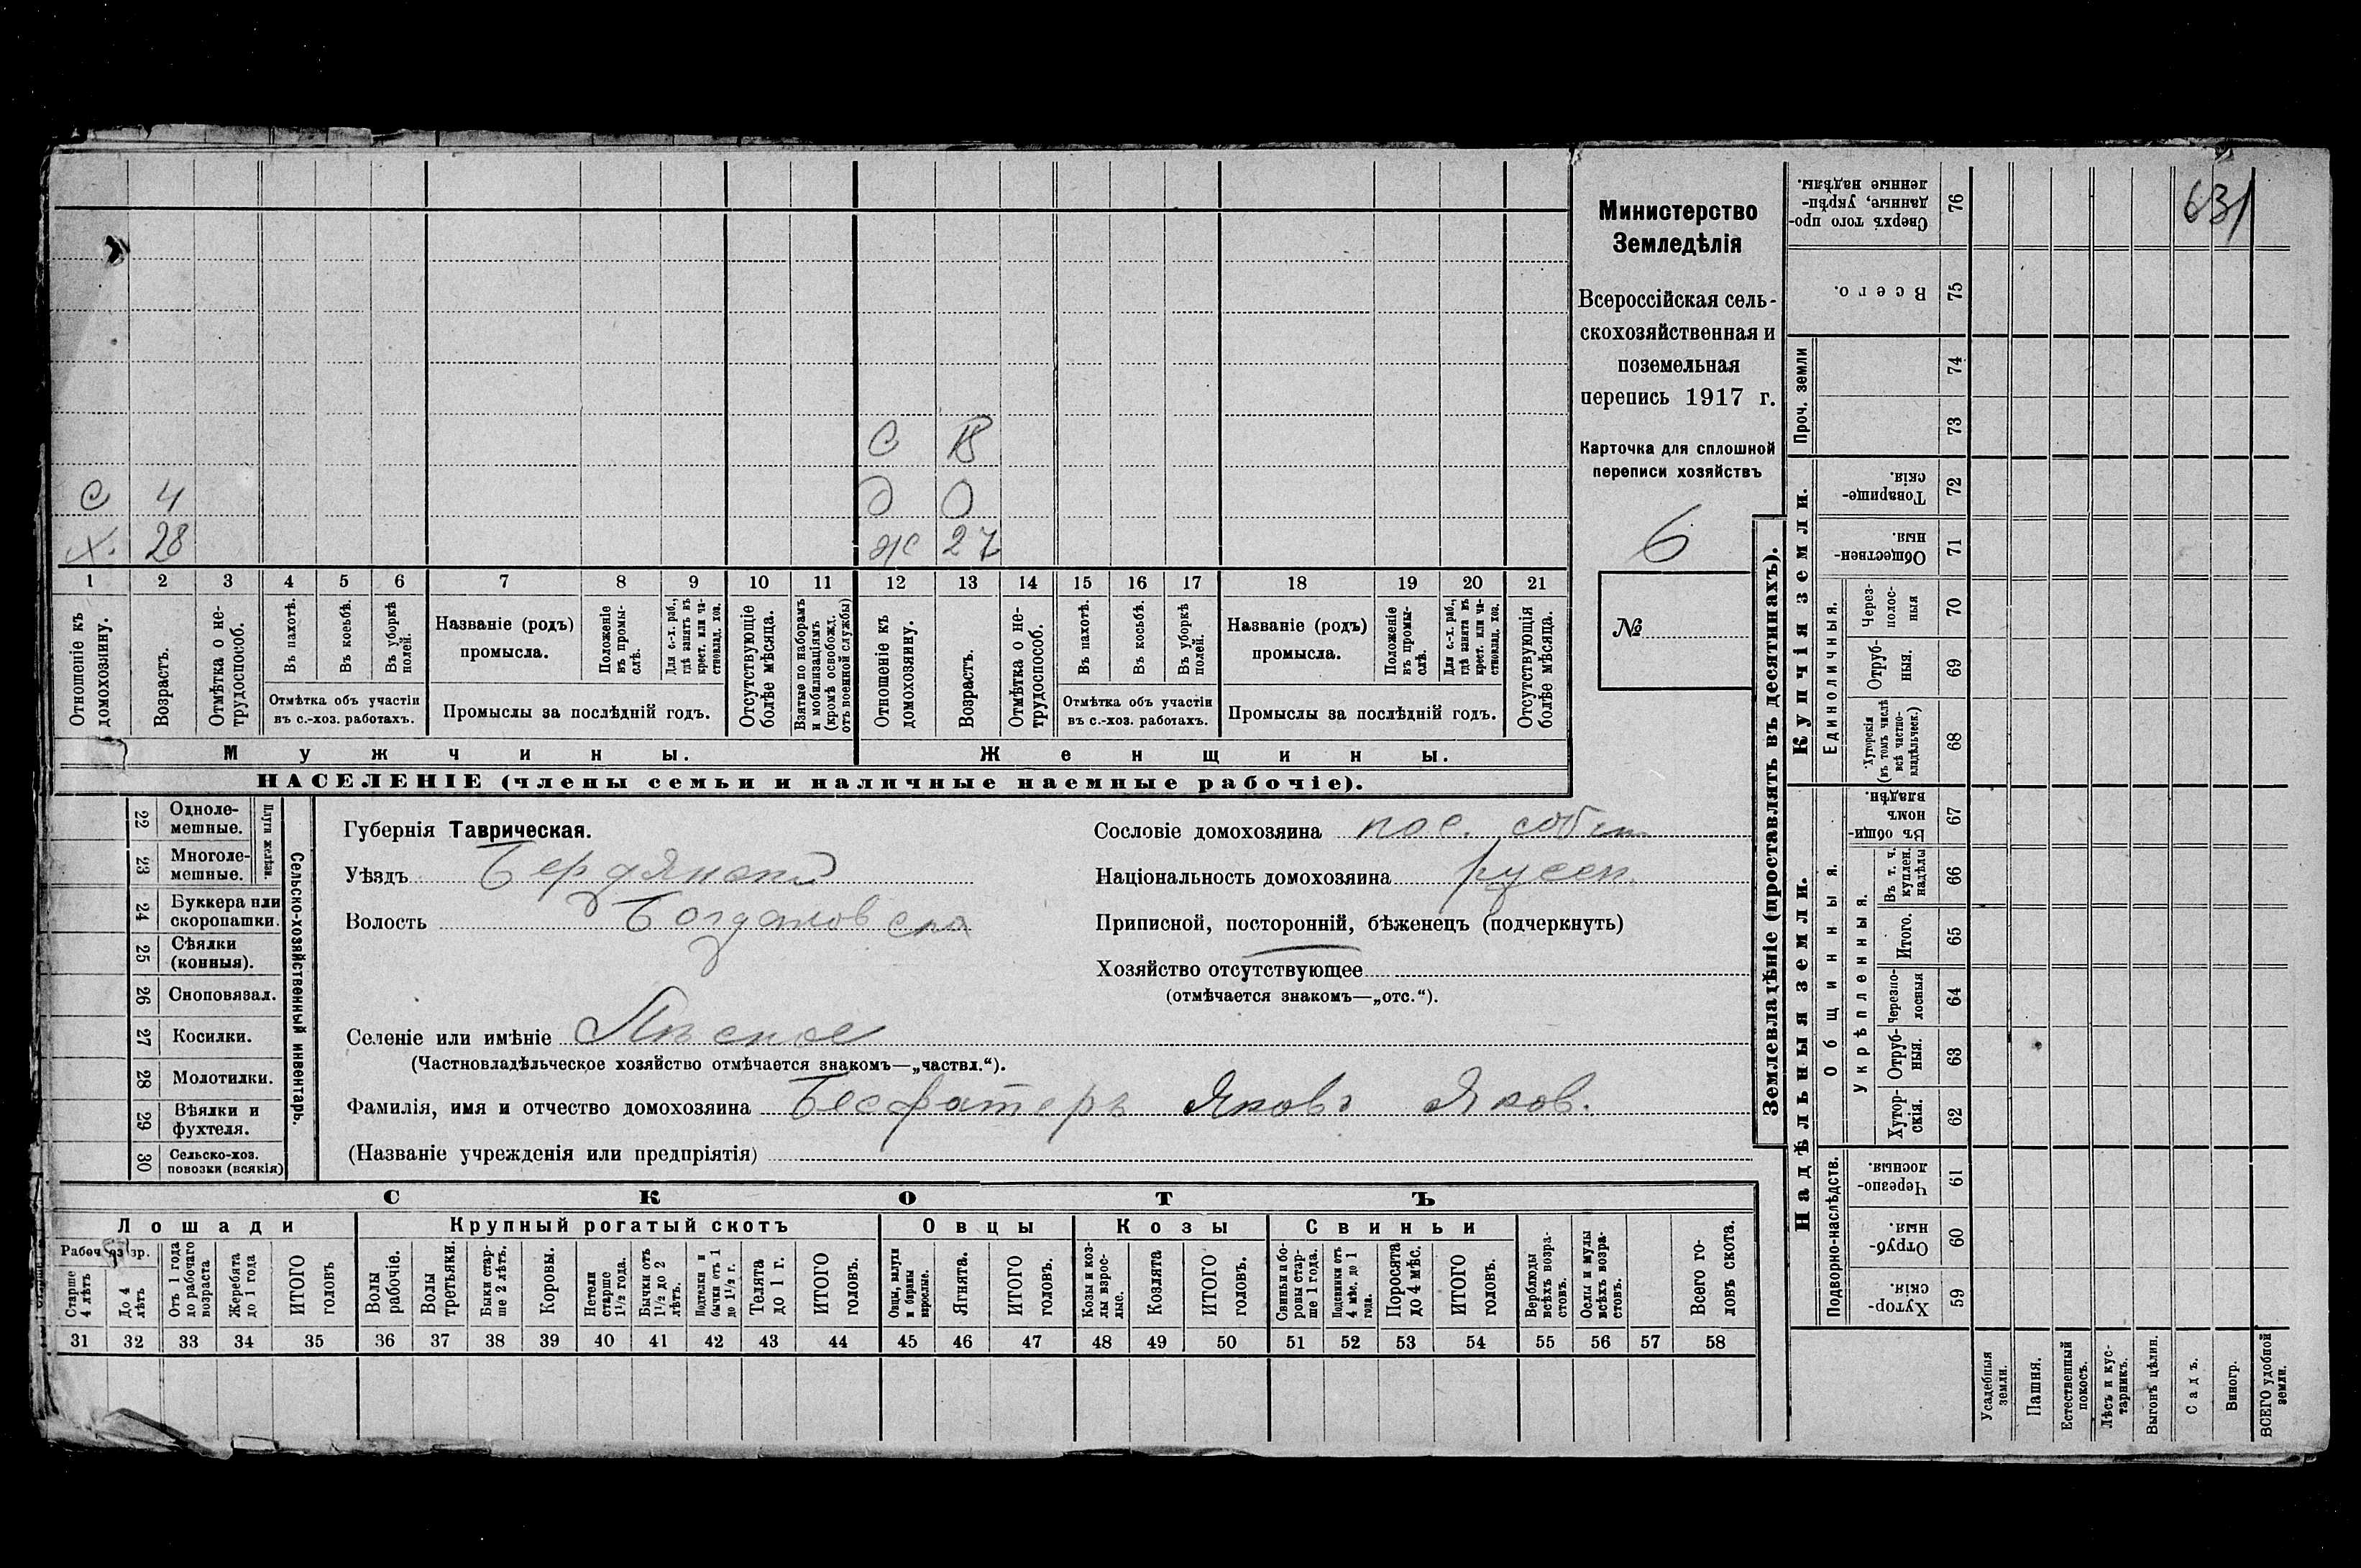 631
Министерство
Земледѣлія
Всероссійская сель-
скохозяйственная и
поземельная
перепись 1917 г.
Карточка для сплошной
переписи хозяйствъ
6
№
С
С 4 Д 0
Х. 28 Ж 27
1 2 3 4 5 6 7 8 9 10 11 12 13 14 15 16 17 18 19 20 21
Отношеніе къ домохозяину.
Возрастъ.
Отмѣтка о не-трудоспособ.
Въ пахотѣ.
Въ косьбѣ.
Въ уборкѣ полей.
Отмѣтка объ участіи
въ с.-хоз. работахъ.
Названіе (родъ)
промысла.
Положеніе въ промы-слѣ.
Для с.-х. раб., гдѣ занятъ въ крест. или ча-ствовлад. хоз.
Промыслы за послѣдній годъ.
Отсутствующіе болѣе мѣсяца.
Взятые по наборамъ и мобилизаціямъ (кромѣ освобожд. отъ военной службы)
Отношеніе къ домохозяину.
Возрастъ.
Отмѣтка о не-трудоспособ.
Въ пахотѣ.
Въ косьбѣ.
Въ уборкѣ полей.
Отмѣтка объ участіи
въ с.-хоз. работахъ.
Названіе (родъ)
промысла.
Положеніе въ промы-слѣ.
Для с.-х. раб., гдѣ занята въ крест. или ча-ствовлад. хоз.
Промыслы за послѣдній годъ.
Отсутствующія болѣе мѣсяца.
Мужчины. Женщины.
НАСЕЛЕНІЕ (члены семьи и наличные наемные рабочіе).
22 Одноле-мешные.
23 Многоле-мешные.
Плуги желѣзн.
24 Буккера или скоропашки.
25 Сѣялки (конныя).
26 Сноповязал.
27 Косилки.
28 Молотилки.
29 Вѣялки и фухтеля.
30 Сельско-хоз. повозки (всякія)
Сельско-хозяйственный инвентарь.
Губернія Таврическая.
Уѣздъ Бердянскій
Волость Богдановска
Селеніе или имѣніе
(Частновладѣльческое хозяйство отмѣчается знакомъ—„частвл.“).
Сословіе домохозяина пос. собст
Національность домохозяина русск.
Приписной, посторонній, бѣженецъ (подчеркнуть)
Хозяйство отсутствующее
(отмѣчается знакомъ—„отс.“).
Фамилія, имя и отчество домохозяина Бесфатеръ Яковъ Яков.
(Названіе учрежденія или предпріятія)
СКОТЪ
Лошади Крупный рогатый скотъ Овцы Козы Свиньи
Рабоч. возр.
Старше 4 лѣтъ
До 4 лѣтъ
Отъ 1 года до рабочаго возраста
Жеребята до 1 года
ИТОГО головъ
Волы рабочіе.
Волы третьяки.
Быки стар-ше 2 лѣтъ.
Коровы.
Нетели старше 1½ года.
Бычки отъ 1½ до 2 лѣтъ.
Подтелки и бычки отъ 1 до 1½ г.
Телята до 1 г.
ИТОГО головъ.
Овцы, валухи и бараны взрослые.
Ягнята.
ИТОГО головъ.
Козы и коз-лы взрос-лые.
Козлята
ИТОГО головъ.
Свиньи и бо-ровы стар-ше 1 года.
Подсвинки отъ 4 мѣс. до 1 года.
Поросята до 4 мѣс.
ИТОГО головъ.
Верблюды всѣхъ возра-стовъ.
Ослы и мулы всѣхъ возра-стовъ.
Всего го-ловъ скота.
31 32 33 34 35 36 37 38 39 40 41 42 43 44 45 46 47 48 49 50 51 52 53 54 55 56 57 58
Землевладѣніе (проставлять въ десятинахъ).
Надѣльныя земли. Купчія земли. Проч. земли
Подворно-наслѣдств.
Общинныя.
Укрѣпленныя.
Единоличныя.
Хутор-скія. 59
Отруб-ныя. 60
Черезпо-лосныя. 61
Хутор-скія. 62
Отруб-ныя. 63
Черезпо-лосныя 64
Итого. 65
Въ т. ч. куплен. надѣлы 66
Въ общин-номъ владѣн. 67
Хуторскія (въ томъ числѣ всѣ частно-владѣльческ.) 68
Отруб-ныя. 69
Через-полос-ныя 70
Обществен-ныя. 71
Товарище-скія. 72
73
74
Всего. 75
Сверхъ того про-данные, укрѣп-ленные надѣлы. 76
Усадебныя земли.
Пашня.
Естественный покосъ.
Лѣсъ и кус-тарникъ.
Выгонъ цѣлин.
Садъ.
Виногр.
ВСЕГО удобной земли.